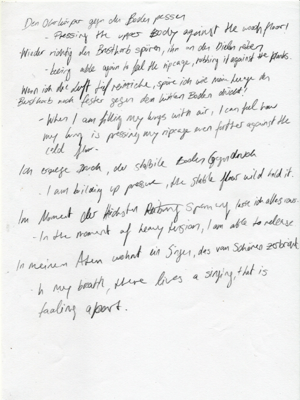 Den Oberkörper gegen den Boden pressen
- Pressing the upper Body against the wood floor!
Wieder richtig den Brustkorb spüren, ihn an den Dielen reiben
- being able again to feel the ripcage, rubbing it against the planks.
Wenn ich die Luft tief einziehe, spüre ich wie mein Lunge den
Brustkorb noch fester gegen den kühlen Boden drückt!
- When I am filling my lungs with air, I can feel how
my lung is pressing my ripcage even further against the
cold floor.
Ich erzeuge Druck, der stabile Boden Gegendruck
- I am building up pressure, the stable floor will hold it.
Im Moment der höchsten Spannung, lasse ich alles raus.
- In the moment of heavy tension, I am able to release
In meinem Atem wohnt ein Singen, das vor Schönes zerbricht
- In my breath, there lives a singing, that is
faaling apart.